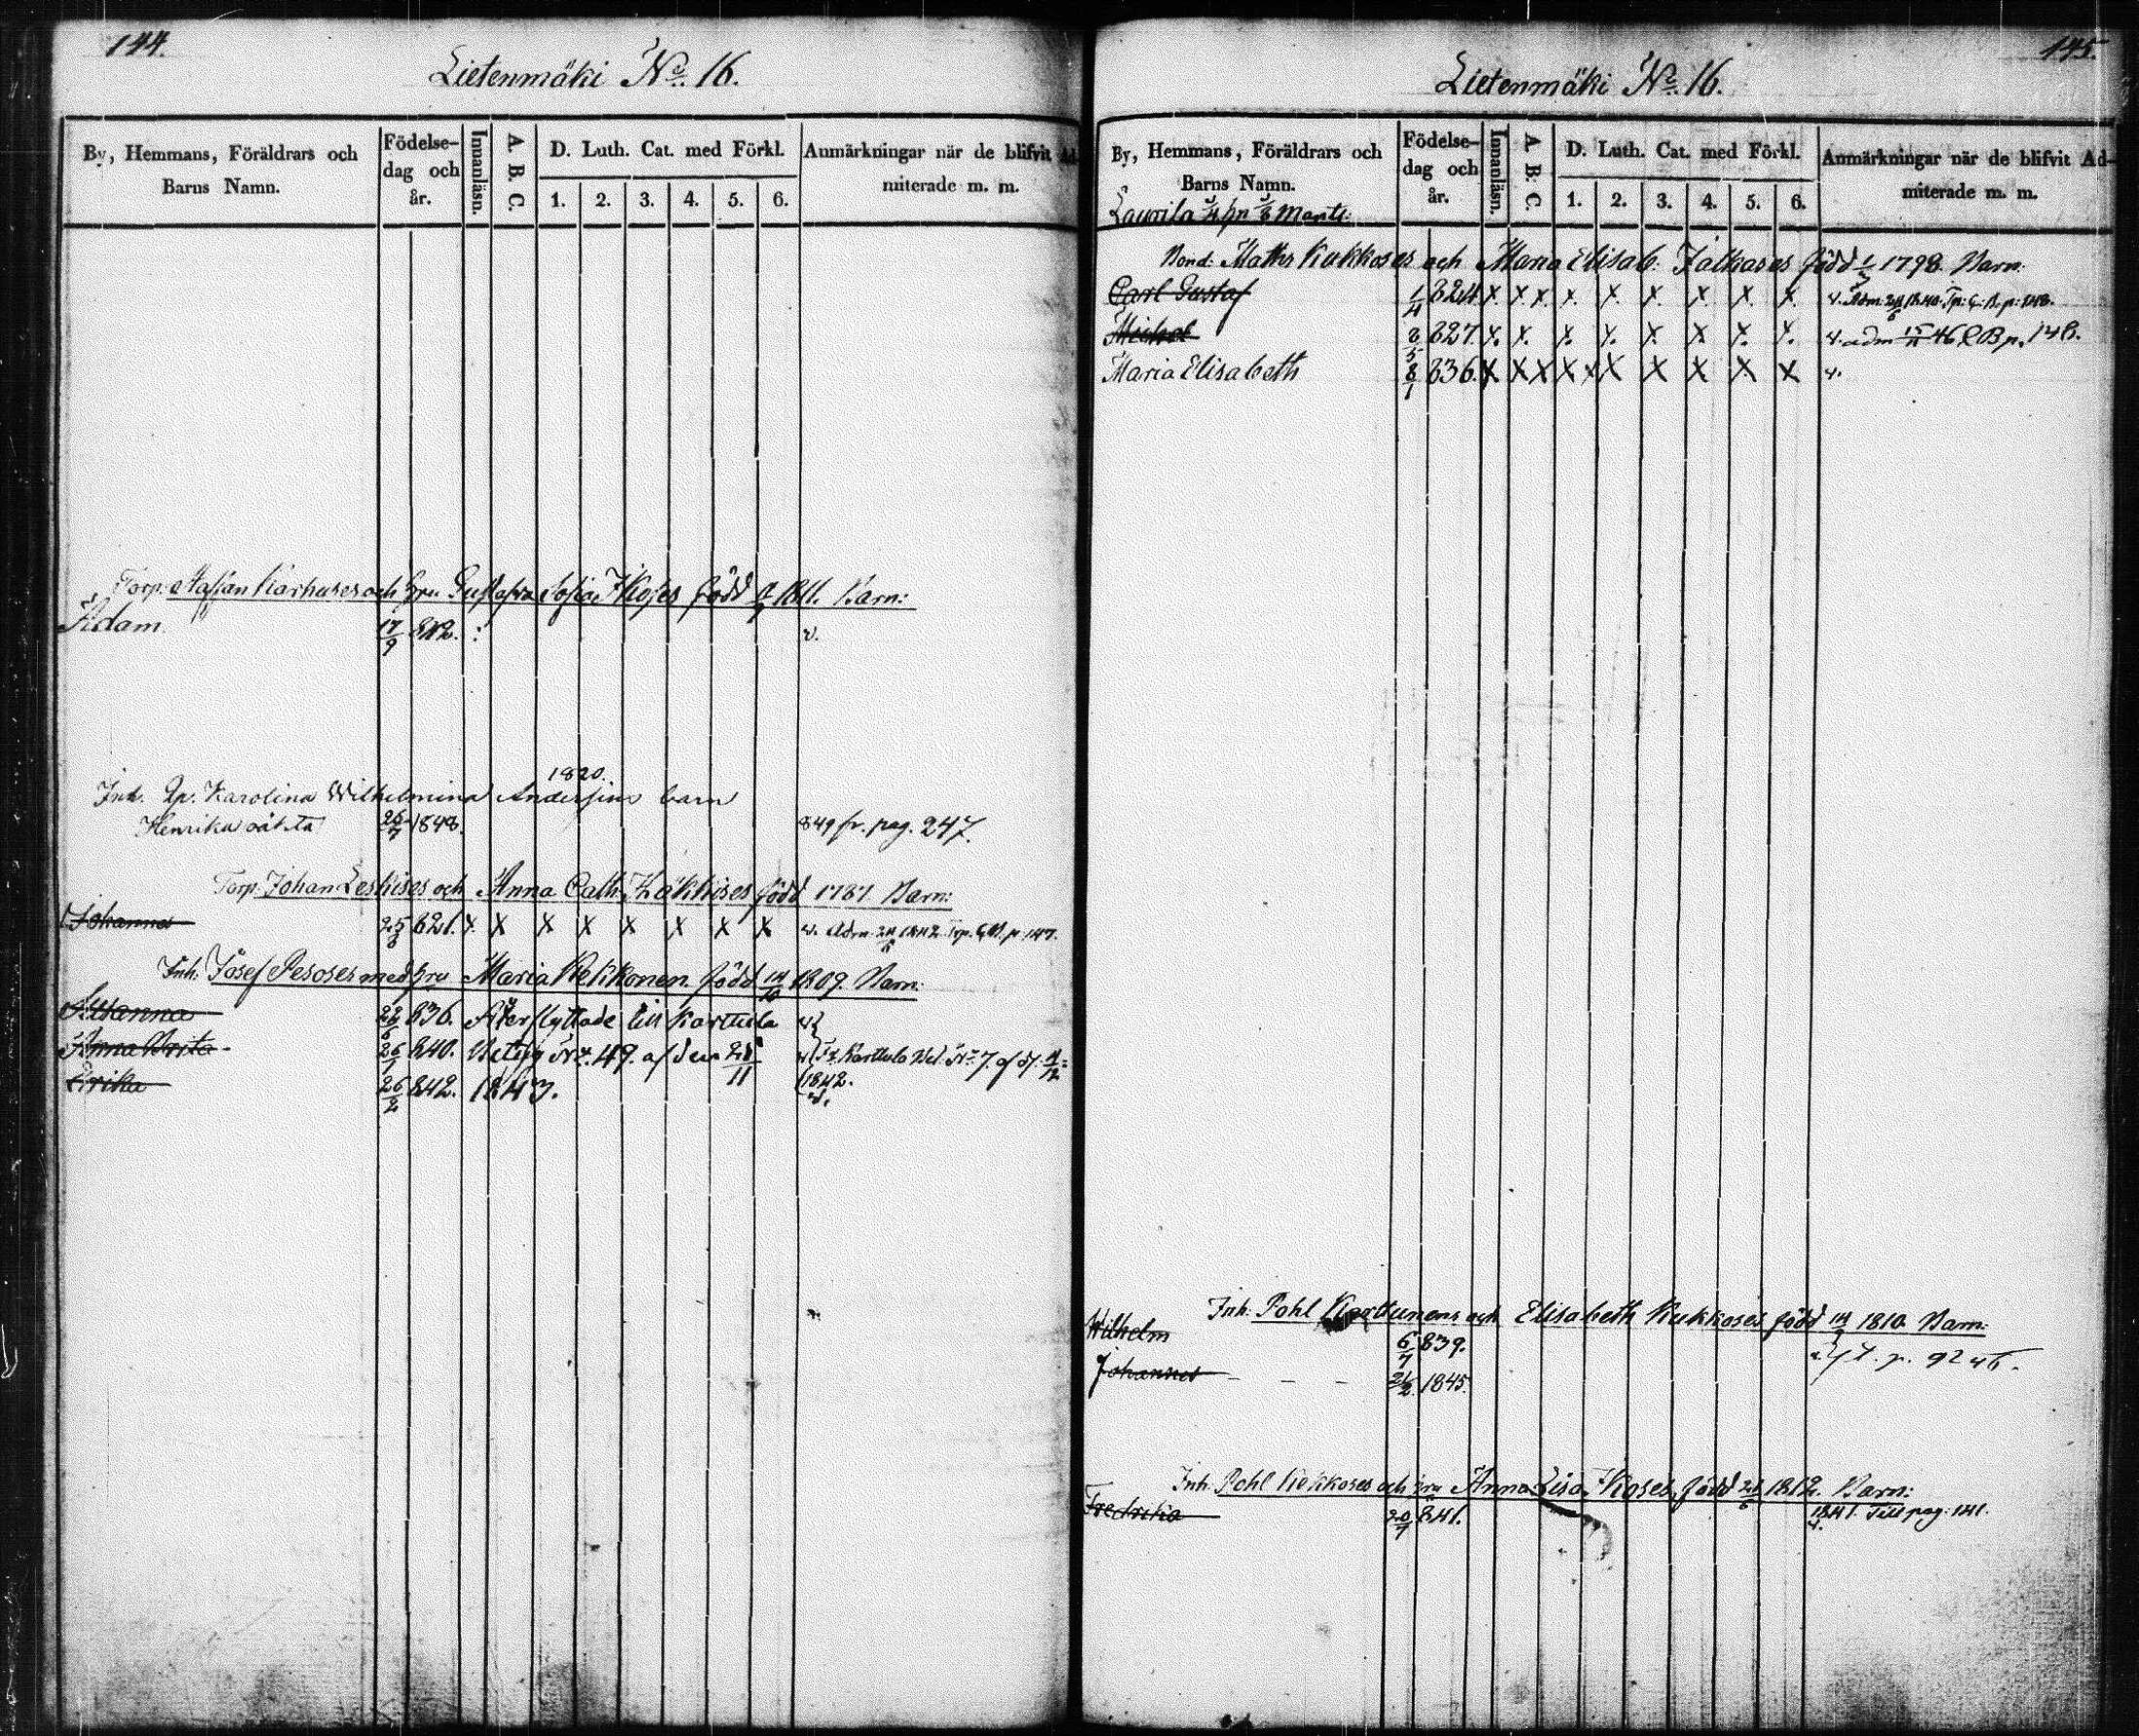 144.
Lietenmäki No. 16.
By, Hemmans, Föräldrars och Barns Namn.
Födelse-dag och år.
Innanläsn.
A. B. C.
D. Luth. Cat. med Förkl.
1. 2. 3. 4. 5. 6.
Anmärkningar när de blifvit Ad-
miterade m. m.
Torp: Staffan Karhuses och hru Gustafva Sofia Ikoses född 1811. Barn:
Adam 17/9 842. v.
1820.
Inh. Karolina Wilhelmina barn
Henrika 26/7 1848. 849 fr. pag. 247.
Torp: Johan Leskises och Anna Cath: född 1787 Barn:
Johannes 25/8 821. x x x x x x x x v. Adm 24/6 1842. p. 147.
Inh: Josef Pesoses med hru Maria Kekkonen född 14/10 1809. Barn:
Susanna 22/6 836. Återflyttade till Karttula
Anna Brita 26/7 840. Betyg No. 49. af den 28/11 Fr. Karttula Bet. No. 7. af d.
Erika 26/2 842. 1843. 1842. v.
145.
Lietenmäki No. 16.
By, Hemmans, Föräldrars och Barns Namn.
Födelse-dag och år.
Innanläsn.
A. B. C.
D. Luth. Cat. med Förkl.
1. 2. 3. 4. 5. 6.
Anmärkningar när de blifvit Ad-
miterade m. m.
Laurila
Bond: Maths Kukkoses och Maria Elisab. Jalkases född 1798. Barn:
Carl Gustaf 1/4 824 x x x x x x x x x v. Adm. 1840. p: 148.
Michel 8/5 827. x x x x x x x x v. adm 46 p. 148.
Maria Elisabeth 8/1 836. x x x x x x x x x x v.
Inh: Pohl Karttunens och Elisabeth Kukkoses född 1810. Barn:
Wilhelm 6/7 839.
Johannes 21/2 1845. p. 92
Inh: Pohl Kekkoses och hru Anna Lisa Ikoses, född 1812. Barn:
Fredrika 20/7 841. 1841. Till pag: 141.